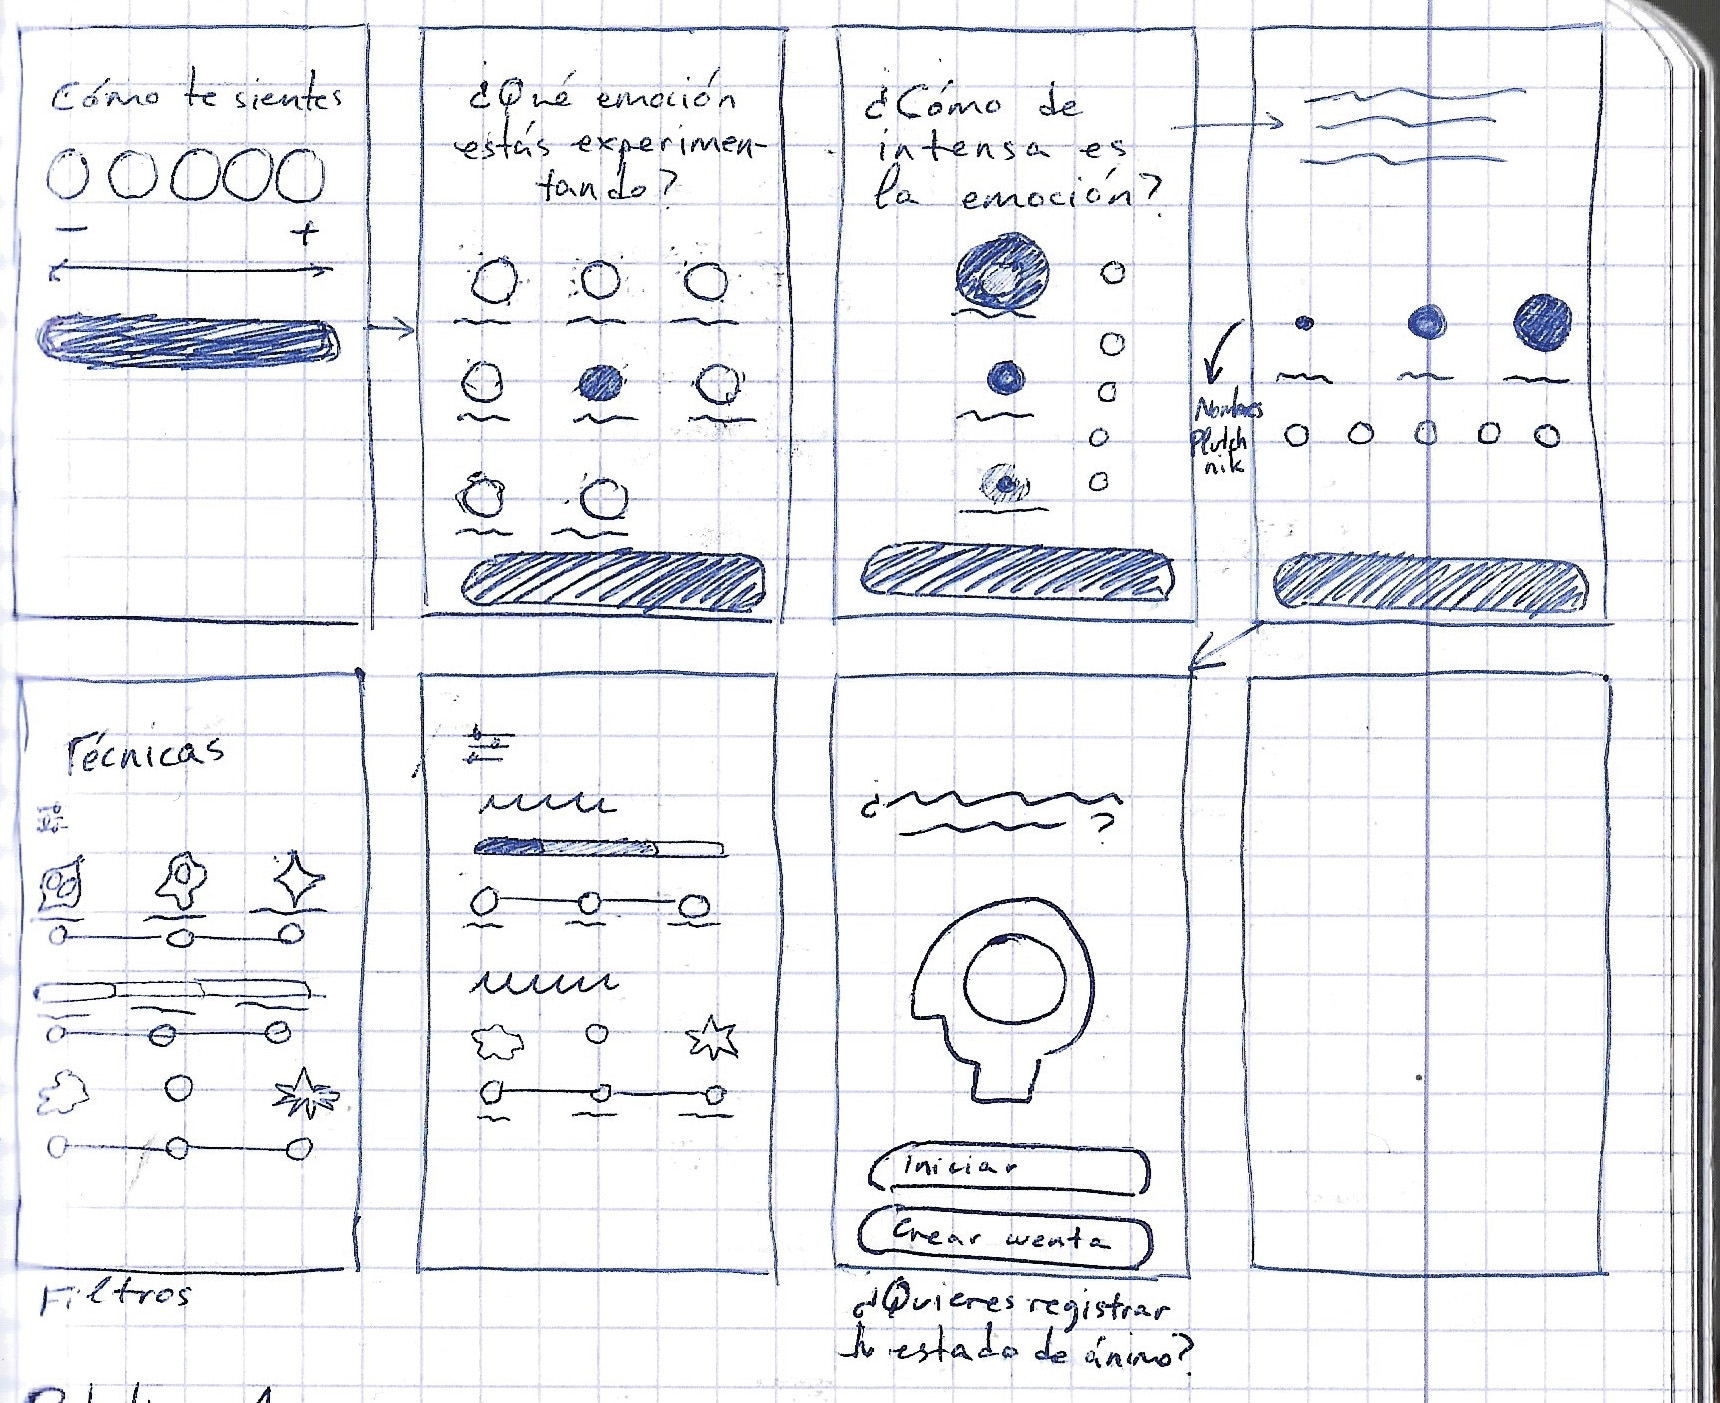 Cómo te sientes
- +
¿Qué emoción
estás experimen-
tando?
¿Cómo de
intensa es
la emoción?
Nombres
Plutch
nik
Técnicas
Filtros
¿ ?
Iniciar
Crear cuenta
¿Quieres registrar
tu estado de ánimo?